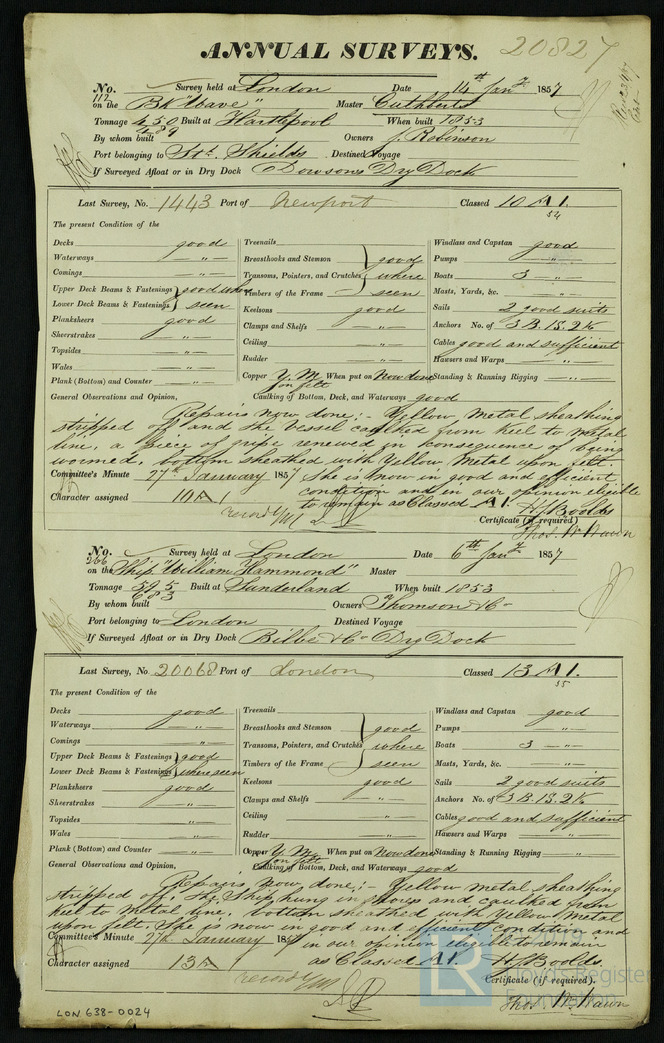 ANNUAL SURVEYS. 20827
No. 112 Survey held at London Date 14th Jany 1857
on the Bk "Wave" Master Cuthberts
Tonnage 450 489 Built at Hartlepool When built 1853
By whom built Owners J. Robinson
Port belonging to Sth. Shields Destined Voyage
If Surveyed Afloat or in Dry Dock Dowsons Dry Dock
Last Survey, No. 1443 Port of Newport Classed 10 A 1. 54
The present Condition of the
Decks good
Waterways "
Comings "
Upper Deck Beams & Fastenings good where
Lower Deck Beams & Fastenings seen
Planksheers good
Sheerstrakes "
Topsides "
Wales "
Plank (Bottom) and Counter "
Treenails
Breasthooks and Stemson good
Transoms, Pointers, and Crutches where
Timbers of the Frame seen
Keelsons good
Clamps and Shelfs "
Ceiling "
Rudder "
Copper Y. M. on felt When put on Now done
Windlass and Capstan good
Pumps "
Boats 3 "
Masts, Yards, &c. "
Sails 2 good suits
Anchors No. of 3 B. 1 S. 2 K
Cables good and sufficient
Hawsers and Warps "
Standing & Running Rigging "
General Observations and Opinion, Caulking of Bottom, Deck, and Waterways good
Repairs now done; - Yellow Metal sheathing
stripped off and the Vessel caulked from keel to metal
line, a piece of gripe renewed in consequence of being
wormed, bottom sheathed with Yellow Metal upon felt.
Committee's Minute 27th January 1857 She is now in good and efficient
condition and in our opinion eligible
Character assigned 10 A 1 to remain as Classed A 1.
record YM H J Boolds
Certificate (if required)
Thos. W. Wawn
No. 266 Survey held at London Date 6th Jany 1857
on the Ship "William Hammond" Master
Tonnage 595 683 Built at Sunderland When built 1853
By whom built Owners Thomson & Co
Port belonging to London Destined Voyage
If Surveyed Afloat or in Dry Dock Bilbe & Co Dry Dock
Last Survey, No. 20068 Port of London Classed 13 A 1. 55
The present Condition of the
Decks good
Waterways "
Comings "
Upper Deck Beams & Fastenings good
Lower Deck Beams & Fastenings where seen
Planksheers good
Sheerstrakes "
Topsides "
Wales "
Plank (Bottom) and Counter "
Treenails
Breasthooks and Stemson good
Transoms, Pointers, and Crutches where
Timbers of the Frame seen
Keelsons good
Clamps and Shelfs "
Ceiling "
Rudder "
Copper Y. M. on felt When put on Now done
Windlass and Capstan good
Pumps "
Boats 3 "
Masts, Yards, &c. "
Sails 2 good suits
Anchors No. of 3 B. 1 S. 2 K
Cables good and sufficient
Hawsers and Warps "
Standing & Running Rigging "
General Observations and Opinion, Caulking of Bottom, Deck, and Waterways good
Repairs now done; - Yellow metal sheathing
stripped off, the Ship hung in shores and caulked from
keel to metal line, bottom sheathed with Yellow Metal
upon felt. She is now in good and efficient condition and
Committee's Minute 27th January 1857 in our opinion eligible to remain
Character assigned 13 A as Classed A 1. H J Boolds
record YM Certificate (if required).
Thos. W. Wawn
LON 638-0024
LR 2019
Lloyd's Register
Foundation